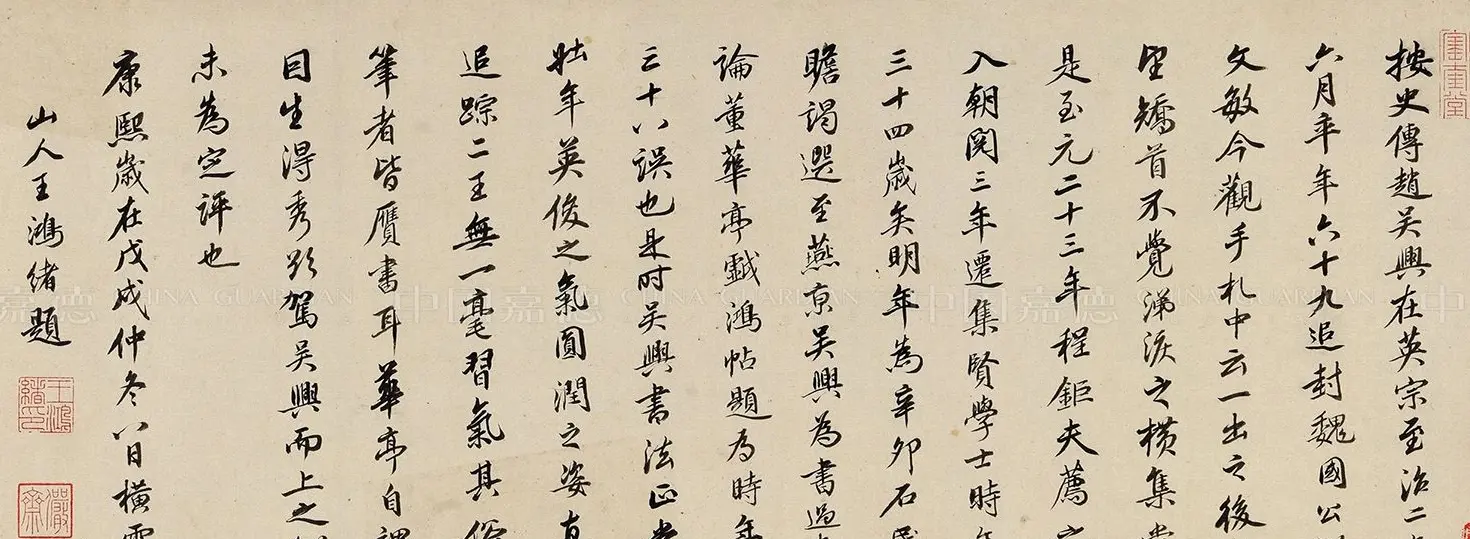 按史傳趙吳興在英宗至治二
六月卒年六十九追封魏國公
文敏今觀手札中云一出之後
望矯首不覺涕淚之橫集
是至元二十三年程鉅夫薦
入朝閱三年遷集賢學士時
三十四歲矣明年為辛卯石
瞻謁選至燕京吳興為書過
論董華亭戲鴻帖題為時年
三十八誤也是時吳興書法正
壯年英俊之氣圓潤之姿直
追踪二王無一毫習氣其俗
筆者皆贗書耳華亭自謂
目生得秀欲駕吳興而上之
未為定評也
康熙歲在戊戌仲冬八日橫雲
山人王鴻緒題
王鴻緒印
中国嘉德 CHINA GUARDIAN